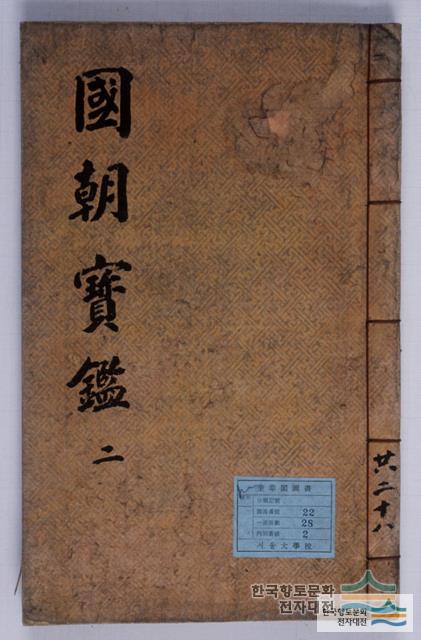 國朝寶鑑
二
共二十八
奎章閣圖書
圖書番號 22
28
2
서울大學校
한국향토문화
전자대전
한국향토문화
전자대전